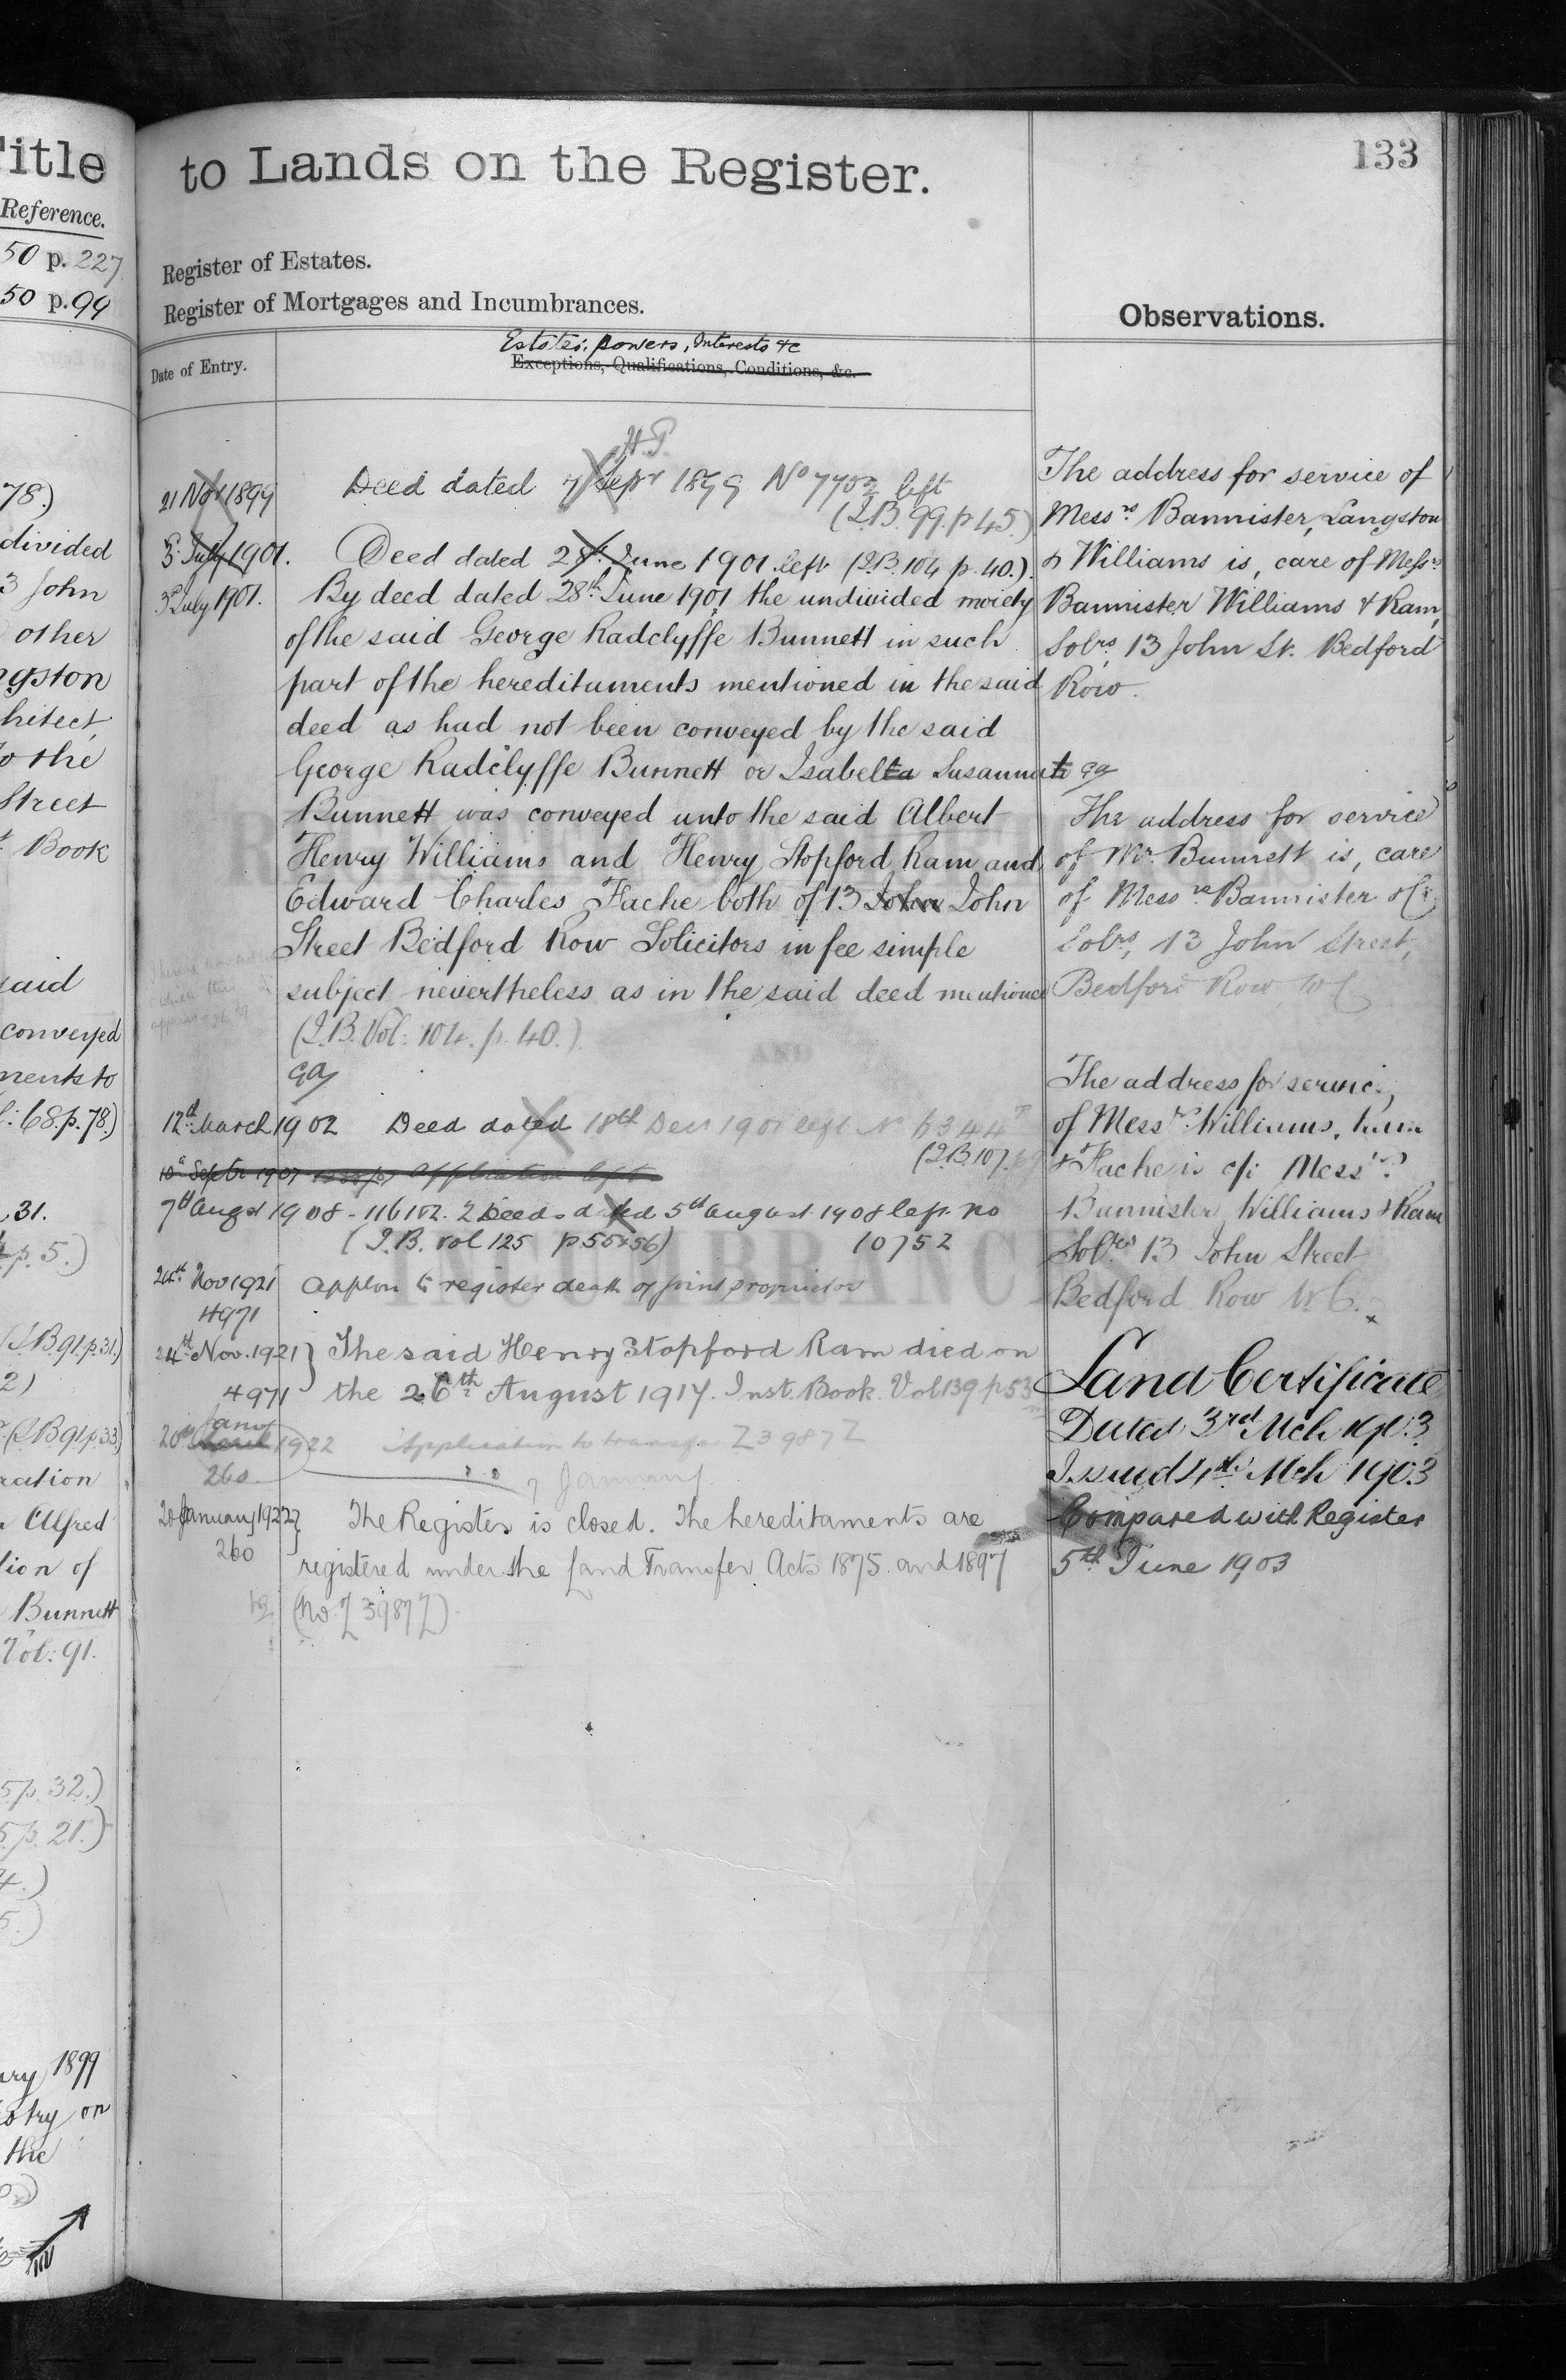 Title
Reference.
50 p. 227
50 p. 99
78.)
divided
3 John
other
ngston
hitect
to the
Street
Book
said
conveyed
ments to
l: 68. p. 78.)
31.
p. 5.)
(I.B. 91. p. 31.)
2)
(I B 91 p. 33)
ration
Alfred
tion of
Bunnett
Vol: 91.
5 p. 32.)
5. p. 21.)
4.)
5.)
ary 1899
istry on
the
133
to Lands on the Register.
Register of Estates.
Register of Mortgages and Incumbrances.
Date of Entry.
Estates, powers, Interests &c
Exceptions, Qualifications, Conditions, &c.
H.P.
21 Nov 1899 Deed dated 7 Sepr 1899 No 7702 left
(I.B. 99. p 45.)
3 July 1901. Deed dated 28th June 1901 left (I.B. 104 p. 40.)
3rd July 1901. By deed dated 28th June 1901 the undivided moiety
of the said George Radclyffe Bunnett in such
part of the hereditaments mentioned in the said
deed as had not been conveyed by the said
George Radclyffe Bunnett or Isabella Susannah
Bunnett was conveyed unto the said Albert
Henry Williams and Henry Stopford Ram and
Edward Charles Fache both of 13 John John
Street Bedford Row Solicitors in fee simple
subject nevertheless as in the said deed mentioned
(I.B. Vol: 104. p. 40.)
12th March 1902 Deed dated 18th Decr 1901 left No 6344
(I.B. 107.
10th Septr 1907 application left
7th Augst 1908 - 2 Deeds dated 5th August 1908 left no
(I.B. vol 125 p 55 & 56) 10752
24th Nov 1921 Applon to register death of joint proprietor
4971
24th Nov. 1921 } The said Henry Stopford Ram died on
4971 the 26th August 1917. Inst. Book. Vol 139 p 53
Jany
20th 1922 Application to transfer Z3987Z
260
January
20 January 1922 } The Register is closed. The hereditaments are
260 registered under the Land Transfer Acts 1875 and 1897
(No. Z3987Z)
Observations.
The address for service of
Messrs Bannister, Langston
& Williams is, care of Messrs
Bannister Williams & Ram,
Solrs, 13 John St. Bedford
Row.
The address for service
of Mr. Bunnett is, care
of Messrs Bannister & Co
Solrs, 13 John Street,
Bedford Row, W C
The address for service
of Messrs Williams, Ram
& Fache is c/o Messrs
Bannister Williams & Ram
Solrs 13 John Street
Bedford Row W.C.
Land Certificate
Dated 3rd Mch 1903
Issued 4th Mch 1903
Compared with Register
5th June 1903